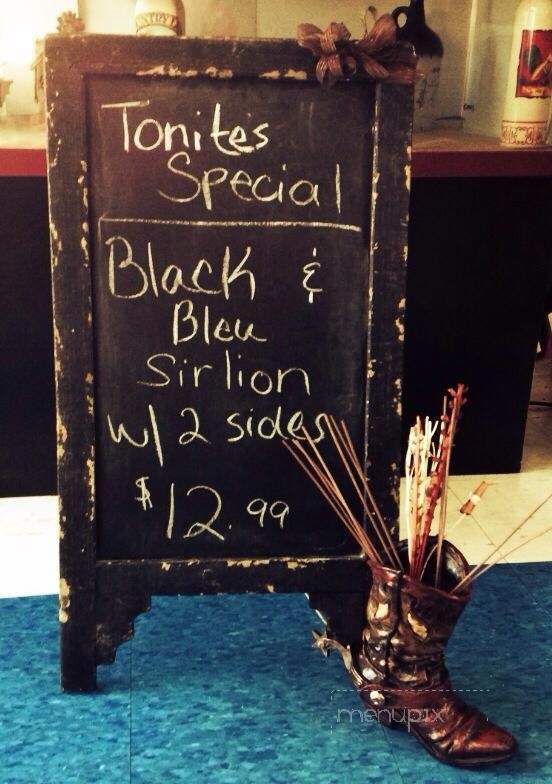 Tonite's
Special
Black &
Bleu
Sirlion
w/ 2 sides
$12.99
menupix